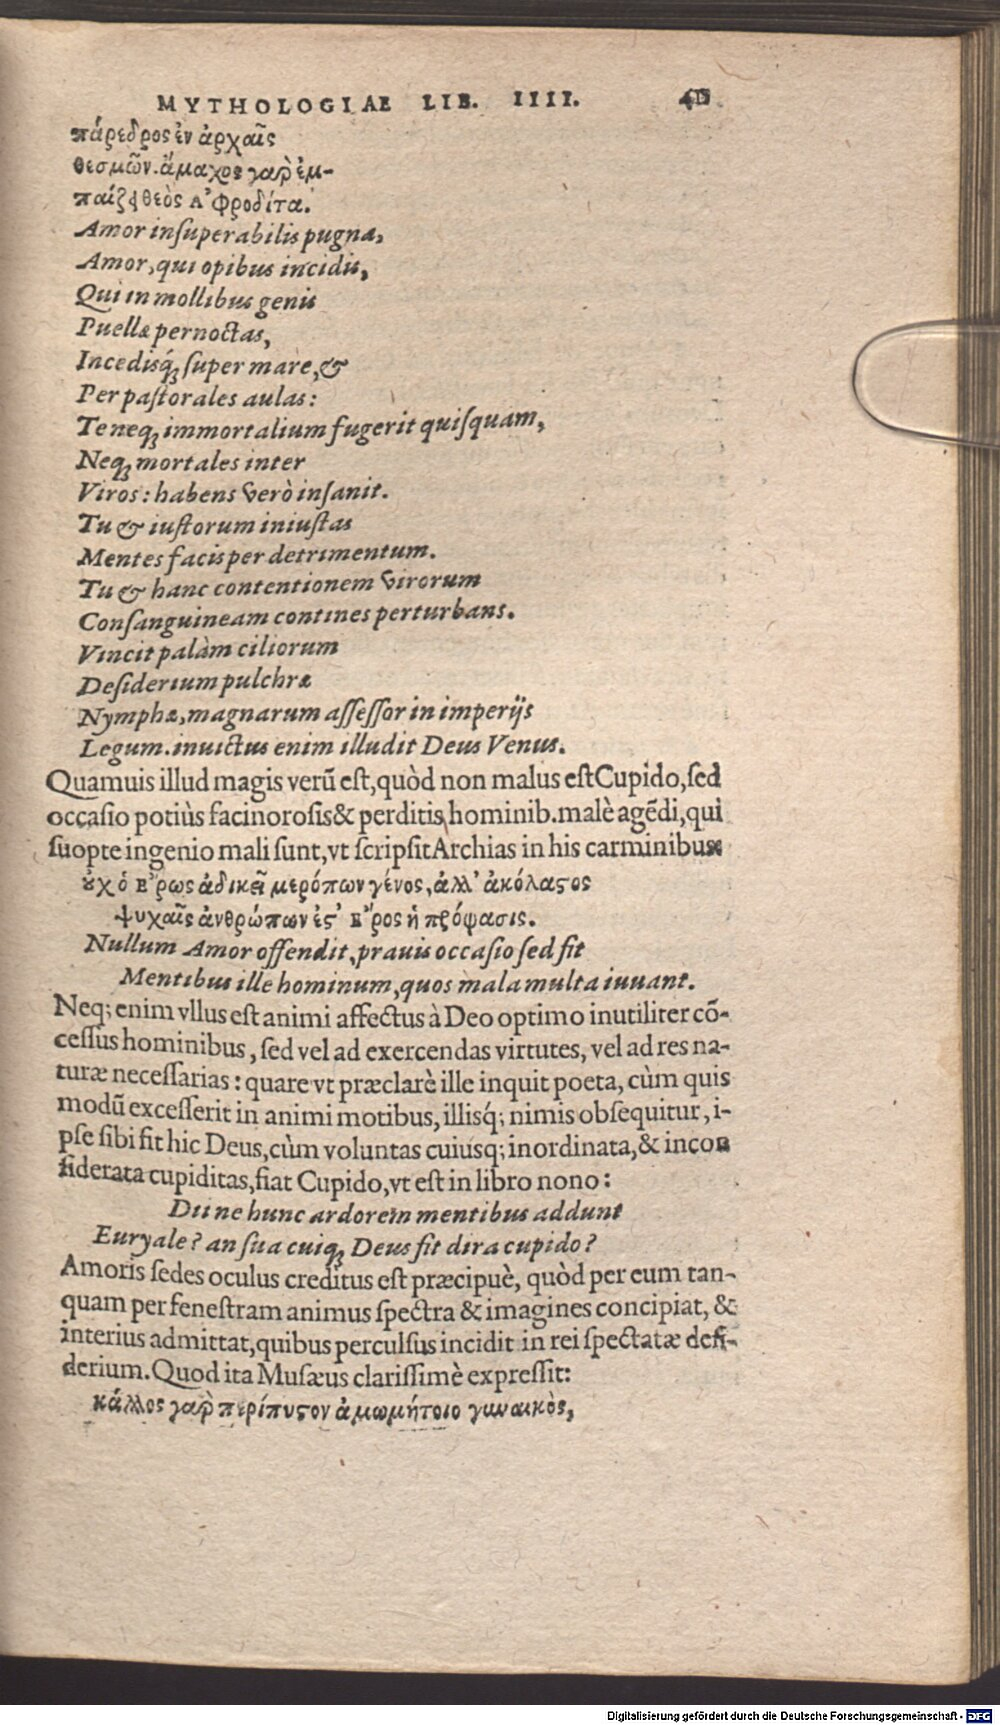 MYTHOLOGIAE LIB. IIII.
πάρεδρος ἐν ἀρχαῖς
θεσμῶν. ἄμαχος γαρ̀ ἐμ-
παίζει θεὸς Α᾿φροδίτα.
Amor insuperabilis pugna,
Amor, qui opibus incidis,
Qui in mollibus genis
Puellæ pernoctas,
Incedisq́; super mare, &
Per pastorales aulas:
Te neq; immortalium fugerit quisquam,
Neq; mortales inter
Viros: habens verò insanit.
Tu & iustorum iniustas
Mentes facis per detrimentum.
Tu & hanc contentionem virorum
Consanguineam contines perturbans.
Vincit palàm ciliorum
Desiderium pulchræ
Nymphæ, magnarum assessor in imperijs
Legum. inuictus enim illudit Deus Venus.
Quamuis illud magis verũ est, quòd non malus est Cupido, sed
occasio potiùs facinorosis & perditis hominib. malè agẽdi, qui
suopte ingenio mali sunt, vt scripsit Archias in his carminibus
ȣ̓χ ὁ Ε῎ρως ἀδικεῖ μερόπων γένος, ἀλλ᾿ ἀκόλαςος
ψυχαῖς ἀνθρώπων ἐς᾿ Ε῎ρος ἡ πρόφασις.
Nullum Amor offendit, prauis occasio sed fit
Mentibus ille hominum, quos mala multa iuuant.
Neq; enim vllus est animi affectus à Deo optimo inutiliter cõ-
cessus hominibus, sed vel ad exercendas virtutes, vel ad res na-
turæ necessarias: quare vt præclarè ille inquit poeta, cùm quis
modũ excesserit in animi motibus, illisq́; nimis obsequitur, i-
pse sibi fit hic Deus, cùm voluntas cuiusq; inordinata, & incon
siderata cupiditas, fiat Cupido, vt est in libro nono:
Dii ne hunc ardorem mentibus addunt
Euryale? an sua cuiq; Deus fit dira cupido?
Amoris sedes oculus creditus est præcipuè, quòd per eum tan-
quam per fenestram animus spectra & imagines concipiat, &
interius admittat, quibus perculsus incidit in rei spectatæ desi-
derium. Quod ita Musæus clarissimè expressit:
κάλλος γαρ̀ περίπυςον ἀμωμήτοιο γυναικὸς,
Digitalisierung gefördert durch die Deutsche Forschungsgemeinschaft - DFG